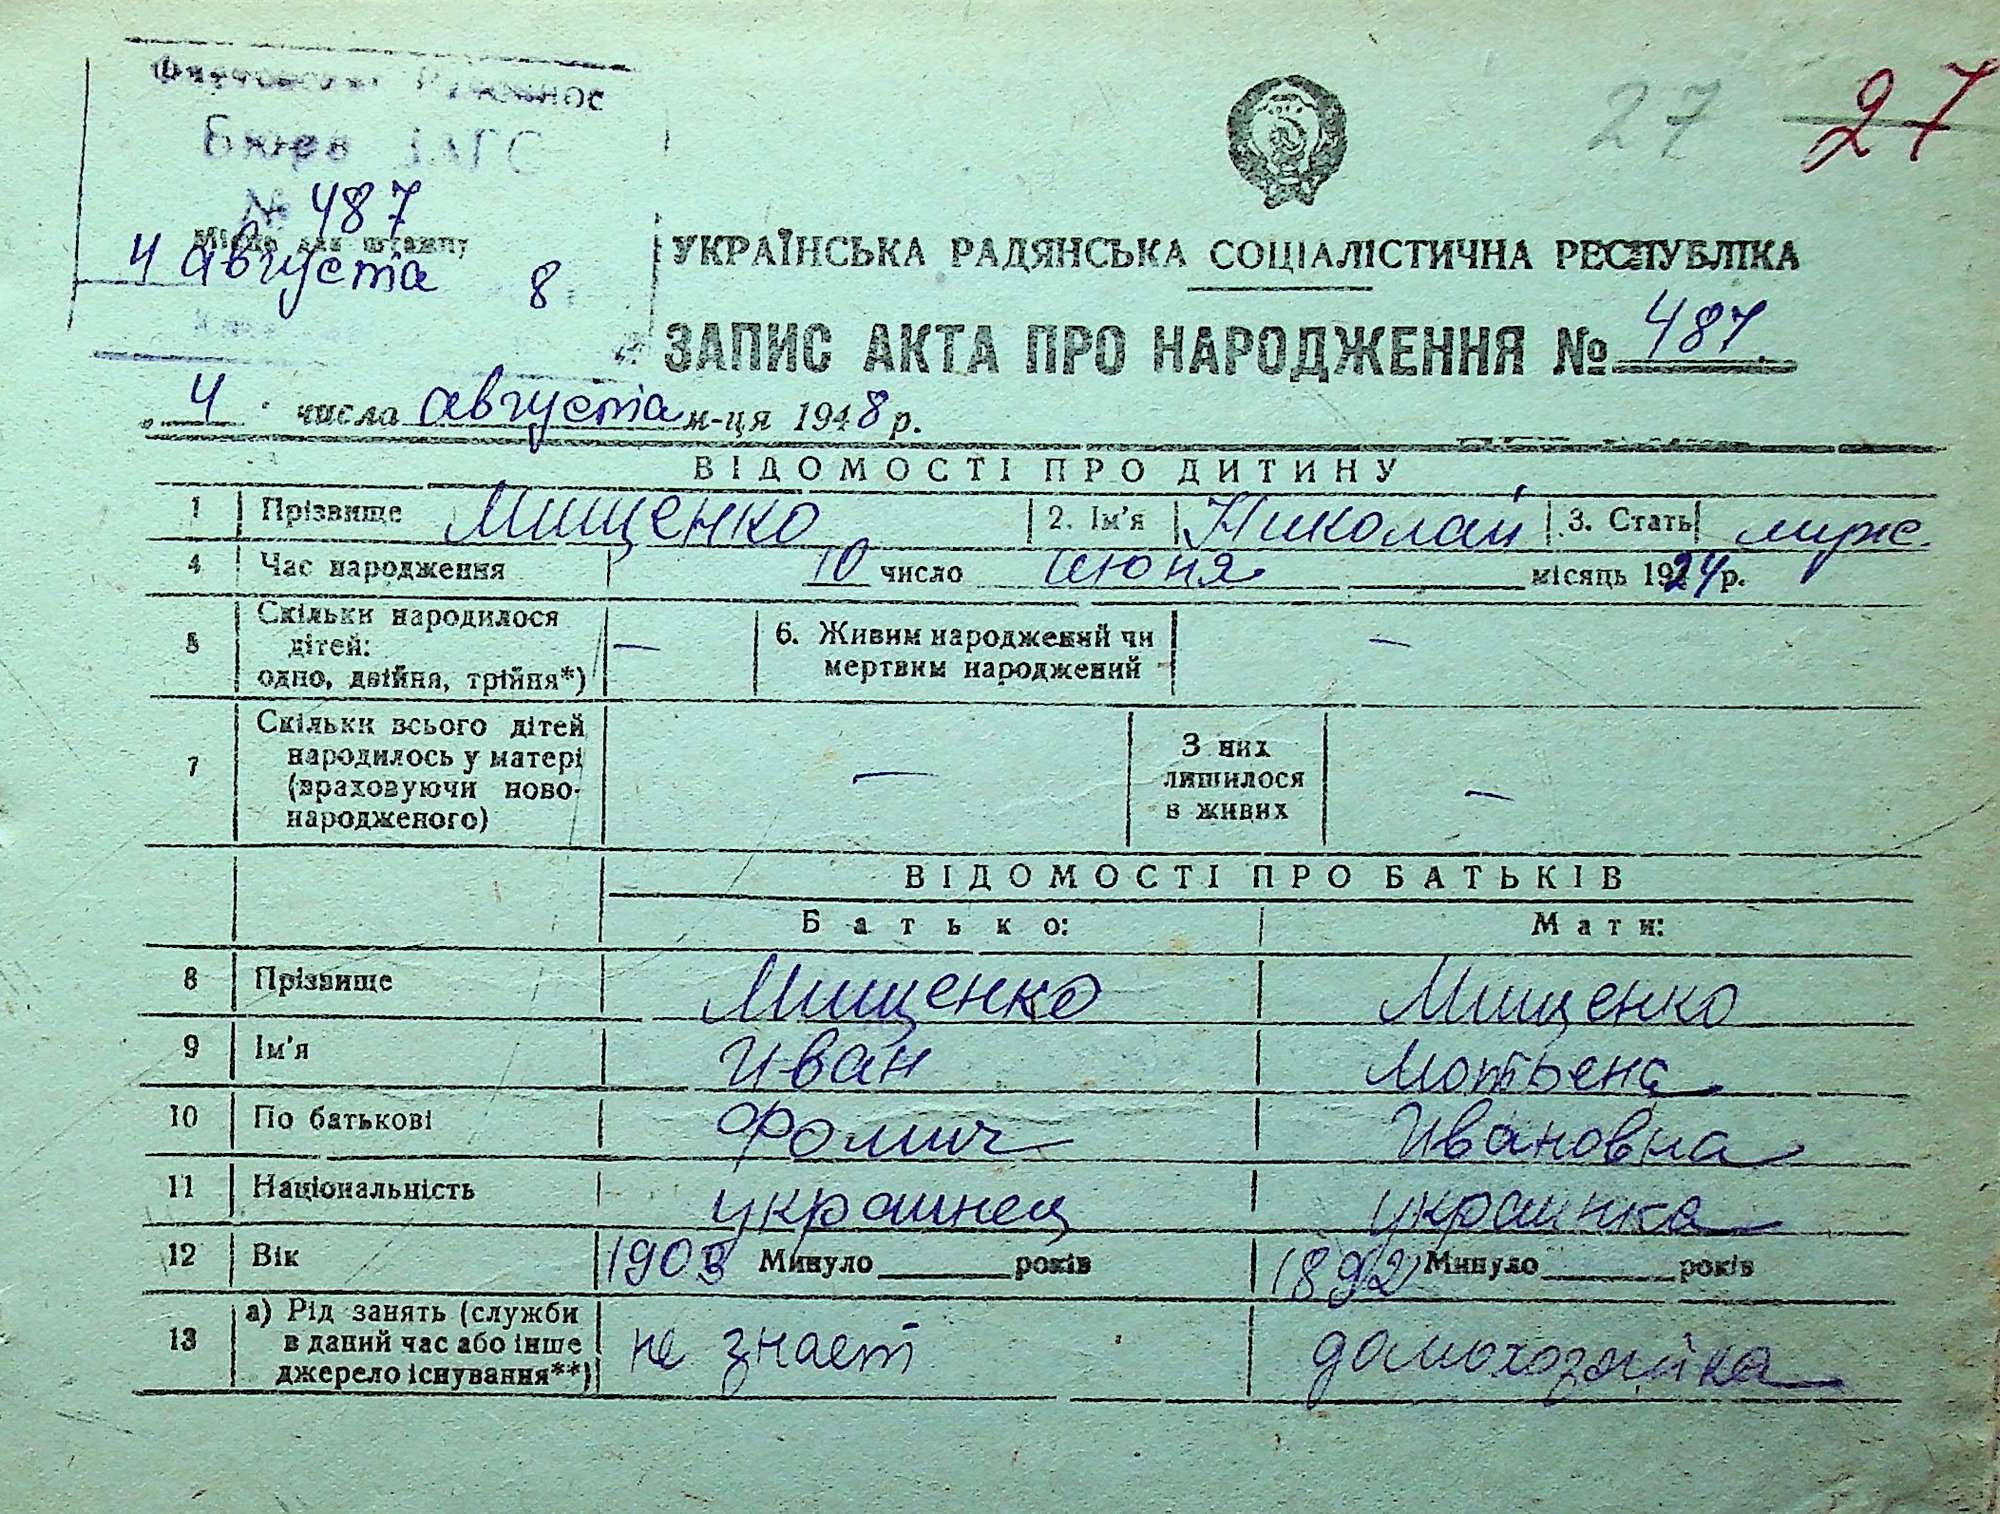 27 27
Бюро ЗАГС
№ 487
Місце для штампу
4 августа 8
УКРАЇНСЬКА РАДЯНСЬКА СОЦІАЛІСТИЧНА РЕСПУБЛІКА
ЗАПИС АКТА ПРО НАРОДЖЕННЯ № 487.
„4“ число августа м-ця 1948 р.
ВІДОМОСТІ ПРО ДИТИНУ
1 Прізвище Мищенко 2. Ім'я Николай 3. Стать муж.
4 Час народження 10 число июня місяць 1924 р.
5 Скільки народилося
дітей:
одно, двійня, трійня*) —
6. Живим народжений чи
мертвим народжений —
7 Скільки всього дітей
народилось у матері
(враховуючи ново-
народженого) —
З них
лишилося
в живих —
ВІДОМОСТІ ПРО БАТЬКІВ
Батько: Мати:
8 Прізвище Мищенко Мищенко
9 Ім'я Иван Мотрена
10 По батькові Фомич Ивановна
11 Національність украинец украинка
12 Вік 1903 Минуло ____ років 1892 Минуло ____ років
13 а) Рід занять (служби
в даний час або інше
джерело існування**) не знает домохозяйка